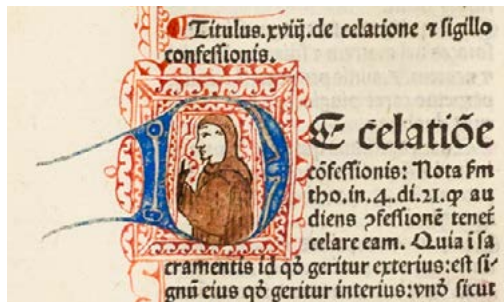 Titulus.xviij.de celatione ⁊ sigillo
confessionis.
DE celatiōe
cōfessionis: Nota ẜm
tho.in.4.di.21.ꝙ au
diens ꝯfessionē tenet̉
celare eam. Quia ī sa
cramentis id qꝺ̄ geritur exterius:est si-
gnū eius qꝺ̄ geritur interius:vnō sicut